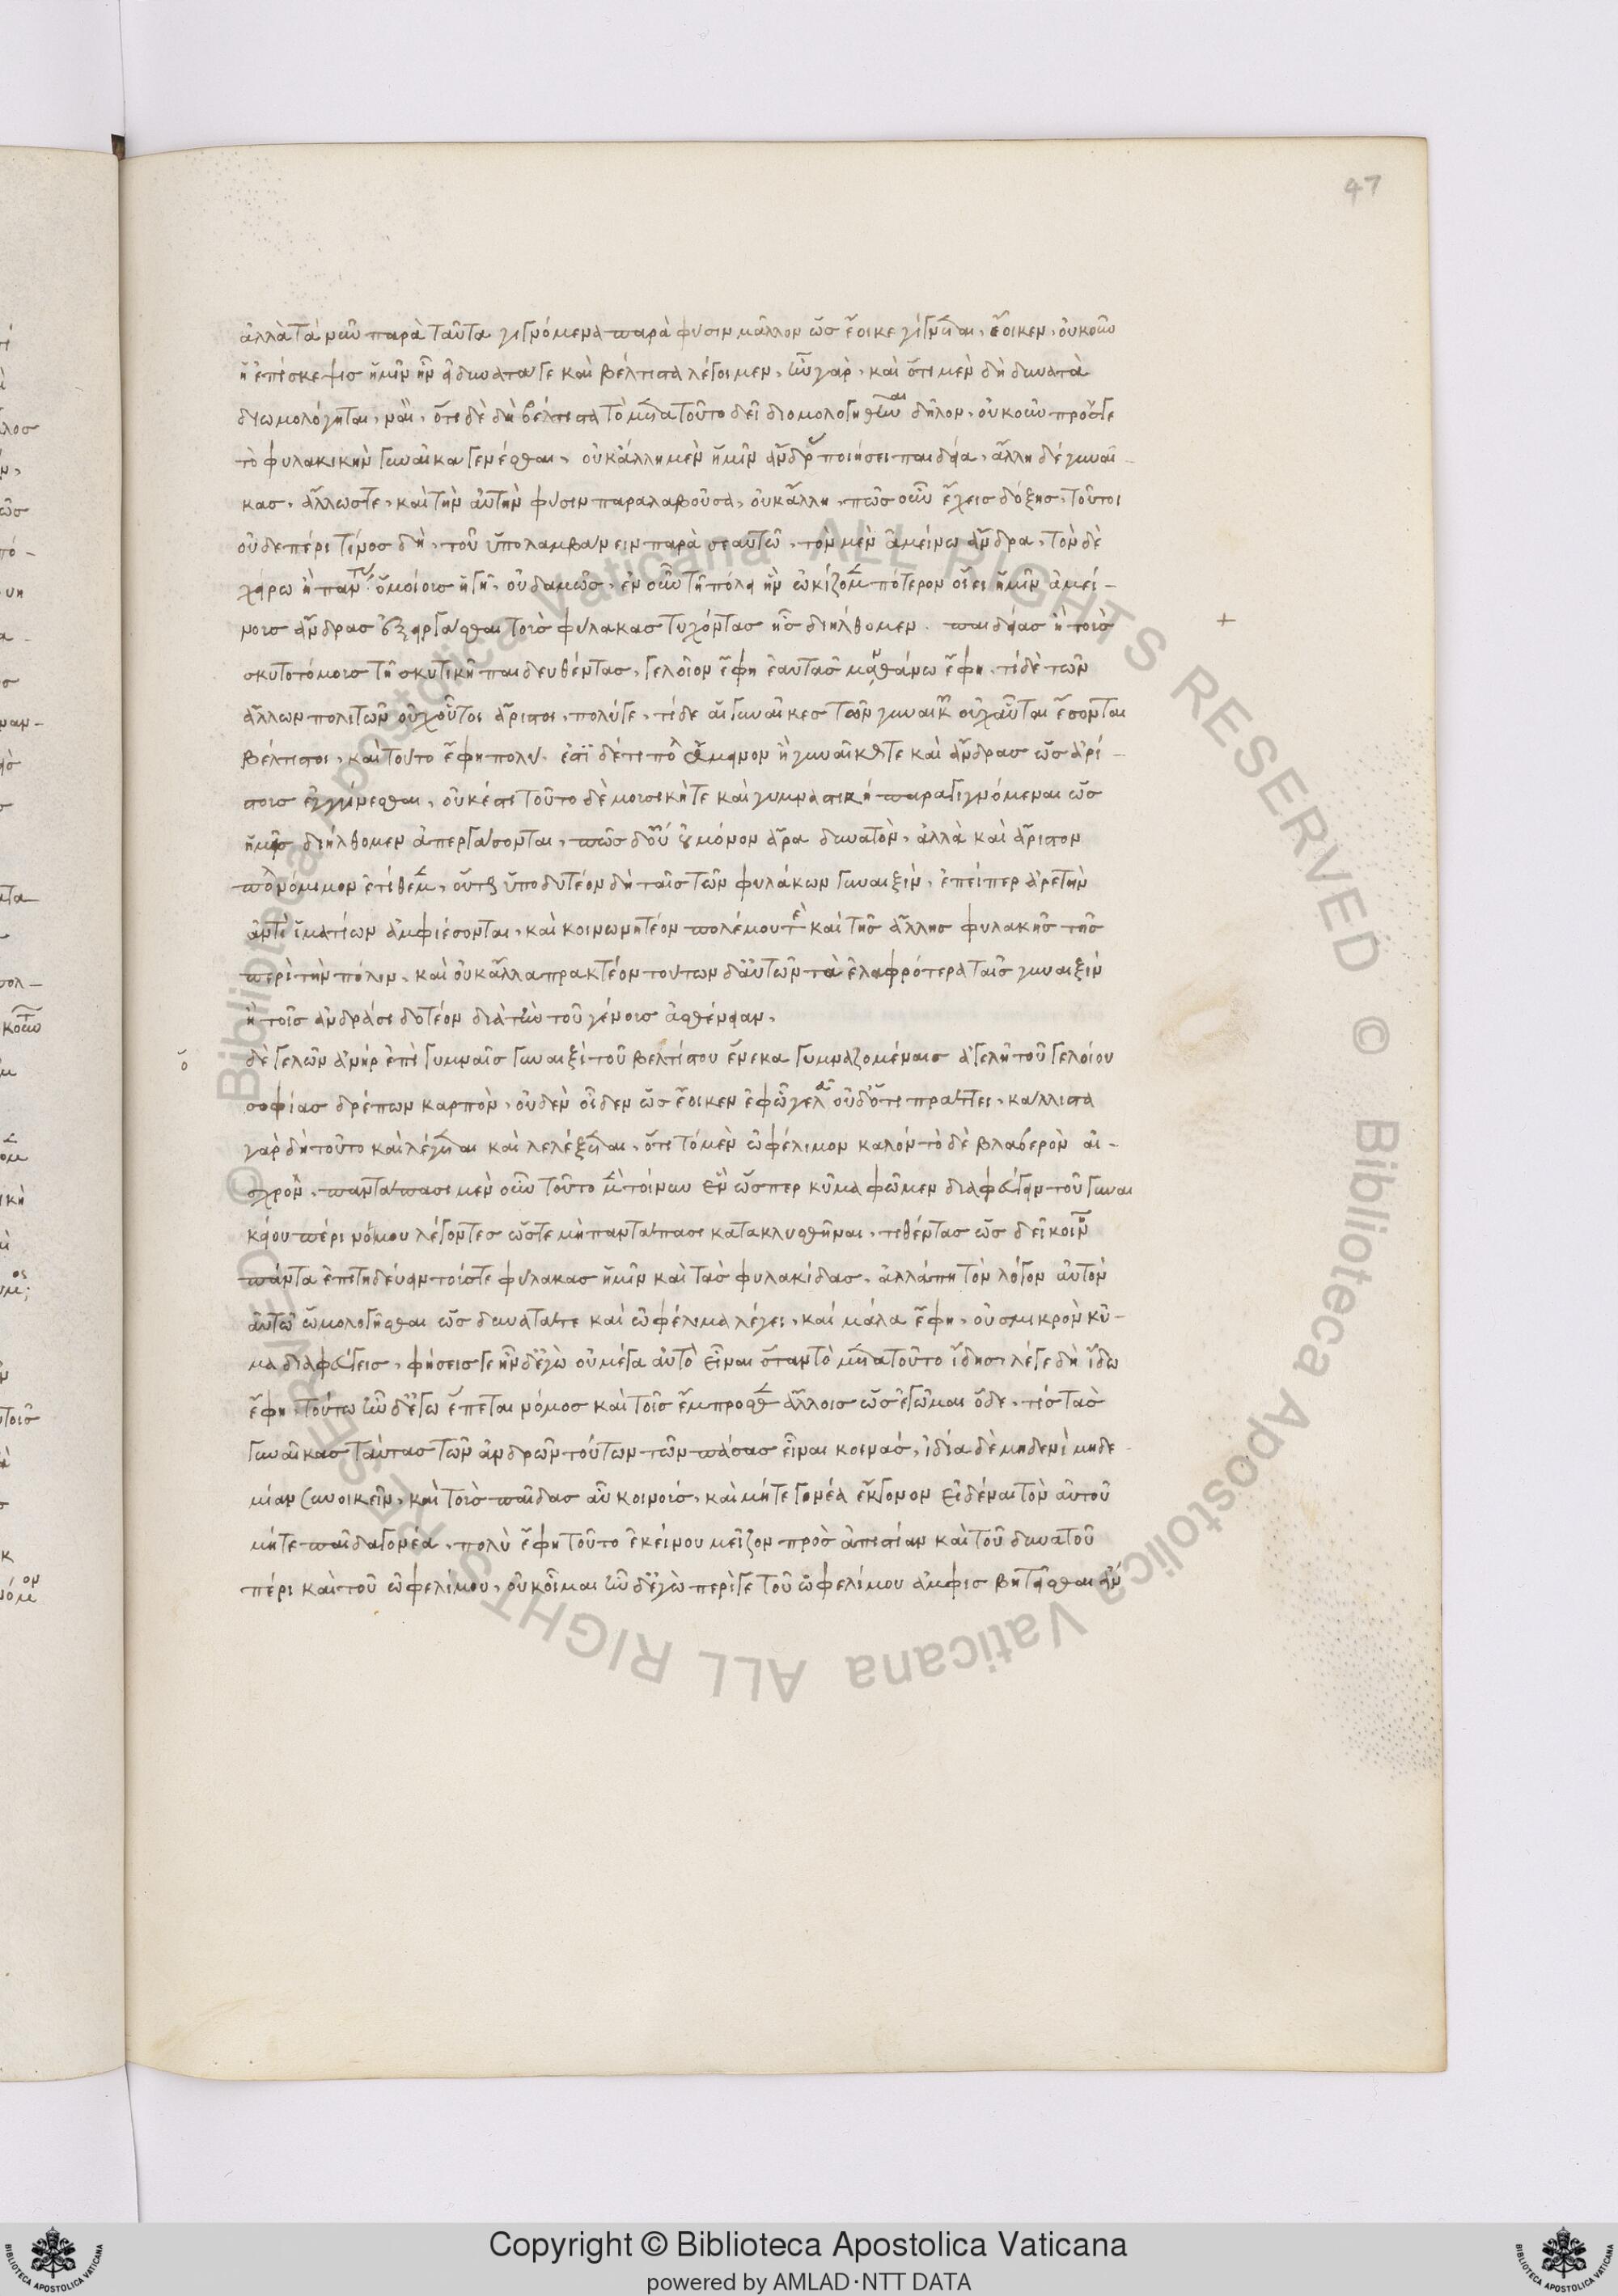 47
ἀλλὰ τὰ νῦν παρὰ ταῦτα γιγνόμενα παρὰ φύσιν μᾶλλον ὡς ἔοικε γίγνεται, ἔοικεν, οὐκοῦν
ἡ ἐπίσκεψις ἡμῖν ἦν εἰ δυνατά γε καὶ βέλτιστα λέγοιμεν, ἦν γὰρ, καὶ ὅτι μὲν δὴ δυνατὰ
διωμολόγηται, ναὶ, ὅτι δὲ δὴ βέλτιστα τὸ μετὰ τοῦτο δεῖ διομολογηθῆναι δῆλον, οὐκοῦν πρός γε
τὸ φυλακικὴν γυναῖκα γενέσθαι, οὐκ ἄλλη μὲν ἡμῖν ἄνδρας ποιήσει παιδεία, ἄλλη δὲ γυναῖ-
κας, ἄλλως τε, καὶ τὴν αὐτὴν φύσιν παραλαβοῦσα, οὐκ ἄλλη, πῶς οὖν ἔχεις δόξης, τοῦ τοι
οὐδε πέρι τίνος δὴ, τοῦ ὑπολαμβάνειν παρὰ σεαυτῶ, τὸν μὲν ἀμείνω ἄνδρα, τὸν δὲ
χείρω ἢ πάντας ὁμοίους ἡγῆ, οὐδαμῶς, ἐν οὖν τῆ πόλει ἣν ὠκίζομεν πότερον οἴει ἡμῖν ἀμεί-
νους ἄνδρας ἐξειργάσθαι τοὺς φύλακας τυχόντας ἧς διήλθομεν παιδείας ἢ τοὺς
σκυτοτόμους τῆ σκυτικῆ παιδευθέντας, γελοῖον ἔφη ἐρωτᾶς μανθάνω ἔφη, τί δὲ τῶν
ἄλλων πολιτῶν οὐχ οὗτοι ἄριστοι, πολύ γε, τί δε αἱ γυναῖκες τῶν γυναικῶν οὐχ αὗται ἔσονται
βέλτισται, καὶ τοῦτο ἔφη πολύ. ἔστι δέ τι πόλει ἄμεινον ἢ γυναῖκάς τε καὶ ἄνδρας ὡς ἀρί-
στους ἐγγίνεσθαι, οὐκ ἔστι τοῦτο δὲ μουσική τε καὶ γυμναστική παραγιγνόμεναι ὡς
ἡμεῖς διήλθομεν ἀπεργάσονται, πῶς δ' οὔ οὐ μόνον ἄρα δυνατὸν, ἀλλὰ καὶ ἄριστον
πόλει νόμιμον ἐτίθεμεν, οὕτως ὑποδυτέον δὴ ταῖς τῶν φυλάκων γυναιξὶν, ἐπείπερ ἀρετὴν
ἀντὶ ἱματίων ἀμφιέσονται, καὶ κοινωνητέον πολέμου τὲ καὶ τῆς ἄλλης φυλακῆς τῆς
περὶ τὴν πόλιν, καὶ οὐκ ἄλλα πρακτέον τούτων δ' αὐτῶν τὰ ἐλαφρότερα ταῖς γυναιξὶν
ἢ τοῖς ἀνδράσι δοτέον διὰ τὴν τοῦ γένους ἀσθένειαν,
ὁ δὲ γελῶν ἀνὴρ ἐπὶ γυμναῖς γυναιξὶ τοῦ βελτίστου ἕνεκα γυμναζομέναις ἀτελῆ τοῦ γελοίου
σοφίας δρέπων καρπὸν, οὐδὲν οἶδεν ὡς ἔοικεν ἐφ' ᾧ γελᾶ οὐδ' ὅτι πράττει, κάλλιστα
γὰρ δὴ τοῦτο καὶ λέγεται καὶ λελέξεται, ὅτι τὸ μὲν ὠφέλιμον καλόν τὸ δὲ βλαβερὸν αἰ-
σχρὸν, παντάπασι μὲν οὖν τοῦτο μὲν τοίνυν ἓν ὥσπερ κῦμα φῶμεν διαφεύγειν τοῦ γυναι
κείου πέρι νόμου λέγοντες ὥστε μὴ παντάπασι κατακλυσθῆναι, τιθέντας ὡς δεῖ κοινῇ
πάντα ἐπιτηδεύειν τούς τε φύλακας ἡμῖν καὶ τὰς φυλακίδας, ἀλλά πη τὸν λόγον αὐτὸν
αὐτῶ ὡμολογῆσθαι ὡς δυνατά τε καὶ ὠφέλιμα λέγει, καὶ μάλα ἔφη, οὐ σμικρὸν κῦ-
μα διαφεύγεις, φήσεις γε ἦν δ' ἐγὼ οὐ μέγα αὐτὸ εἶναι ὅταν τὸ μετὰ τοῦτο ἴδης, λέγε δὴ ἴδω
ἔφη, τούτω ἦν δ' ἐγω ἕπεται νόμος καὶ τοῖς ἔμπροσθεν ἄλλοις ὡς ἐγὦμαι ὅδε, τίς τὰς
γυναῖκας ταύτας τῶν ἀνδρῶν τούτων τῶν πάσας εἶναι κοινάς, ἰδία δὲ μηδενὶ μηδε
μίαν συνοικεῖν, καὶ τοὺς παῖδας αὖ κοινούς, καὶ μήτε γονέα ἔκγονον εἰδέναι τὸν αὑτοῦ
μήτε παῖδα γονέα, πολὺ ἔφη τοῦτο ἐκείνου μεῖζον πρὸς ἀπιστίαν καὶ τοῦ δυνατοῦ
πέρι καὶ τοῦ ὠφελίμου, οὐκ οἶμαι ἦν δ' ἐγὼ περί γε τοῦ ὠφελίμου ἀμφισβητεῖσθαι ἂν
Copyright © Biblioteca Apostolica Vaticana
powered by AMLAD·NTT DATA